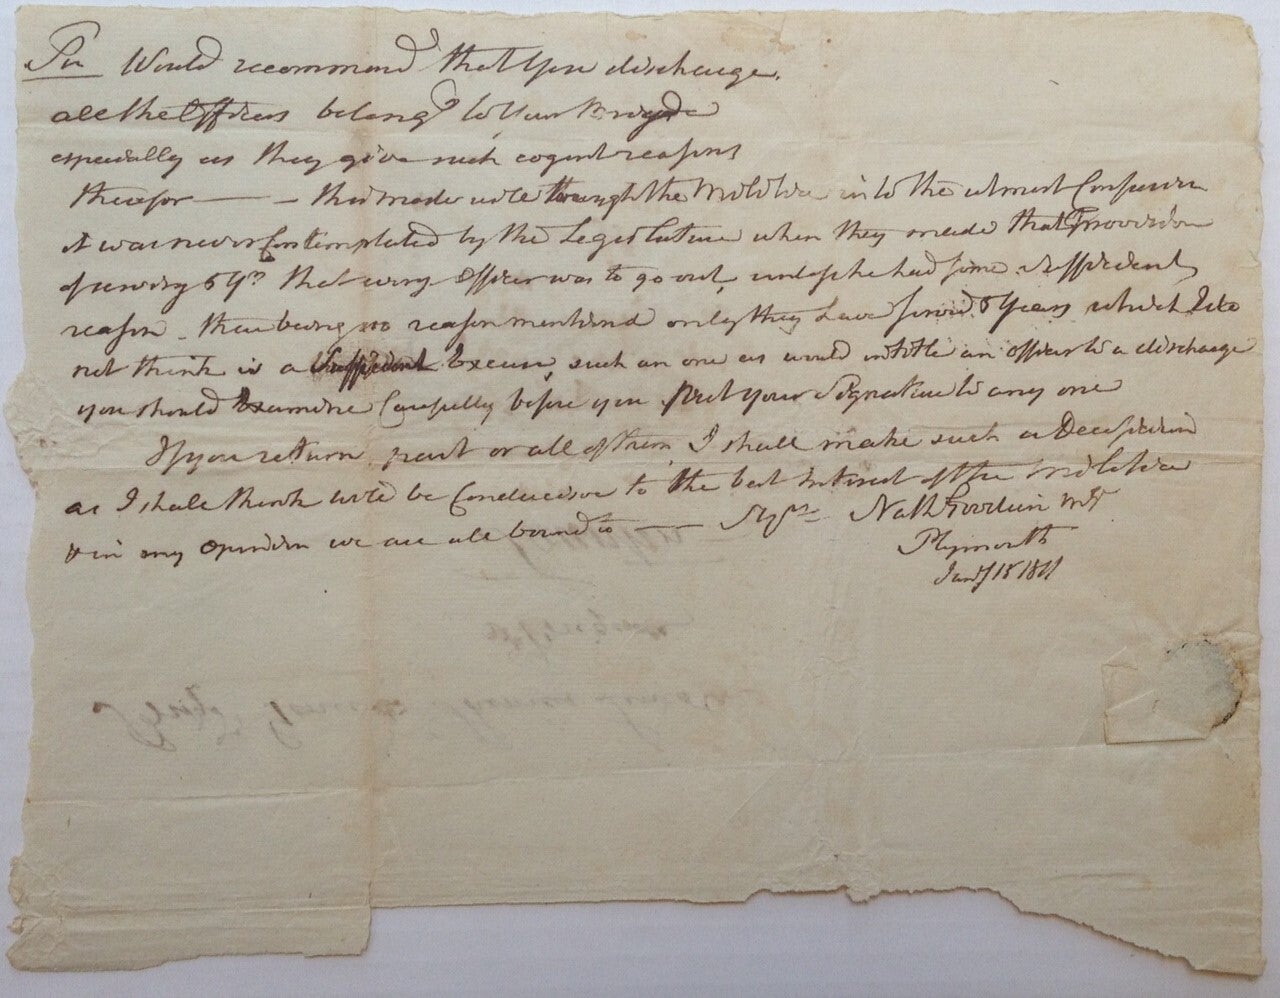 Sir Would recommend that you discharge
all the Officers belong.g to your Brigde
especially as they give such cogent reasons
therefor — — this mode will through the Militia into the utmost Confusion
it was never Contemplated by the Legislature when they made that Provision
of serving 5 yrs that every officer was to go out, unless he had some sufficient
reason - there being no reason mentioned only they have served 5 years which I do
not think is a sufficient Excuse, such an one as would intitle an officer to a discharge
you should Examine Carefully before you put your Signature to any one
If you return part or all of them I shall make such a Decission
as I shall think will be Conducive to the best Interest of the Militia
& in my opinion we are all bound to — Nath Goodwin
Plymouth
Jany 15 1811